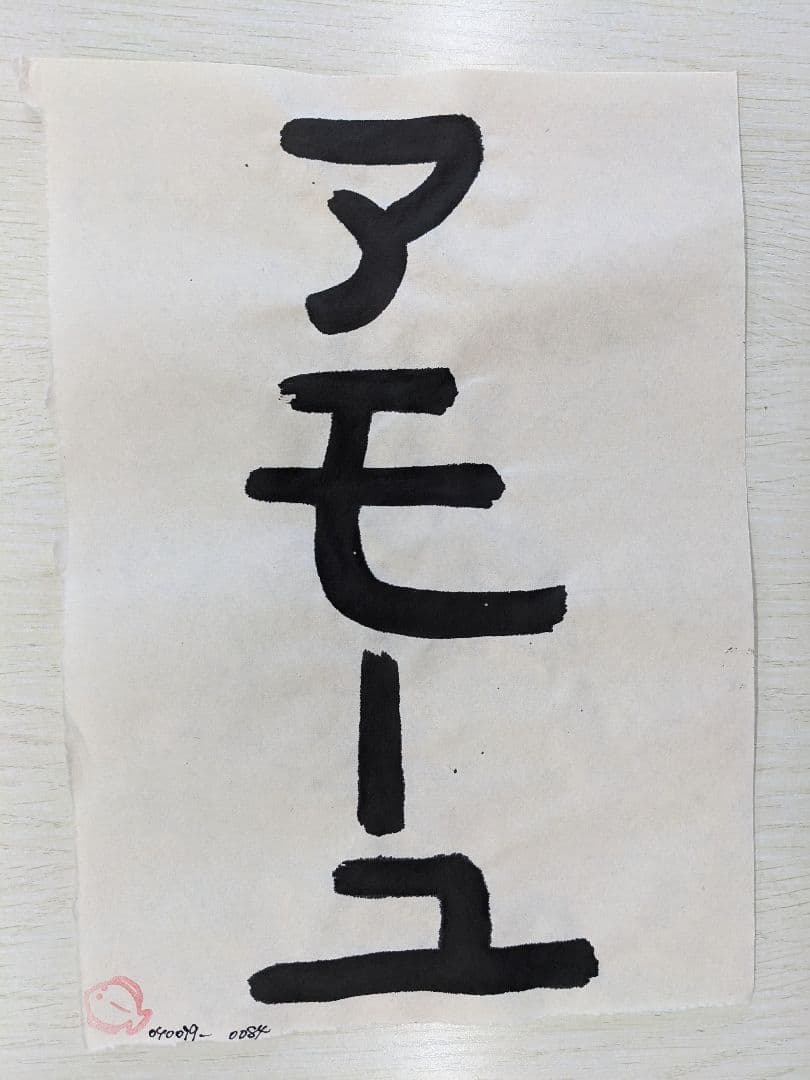 アモーユ
040099- 0084